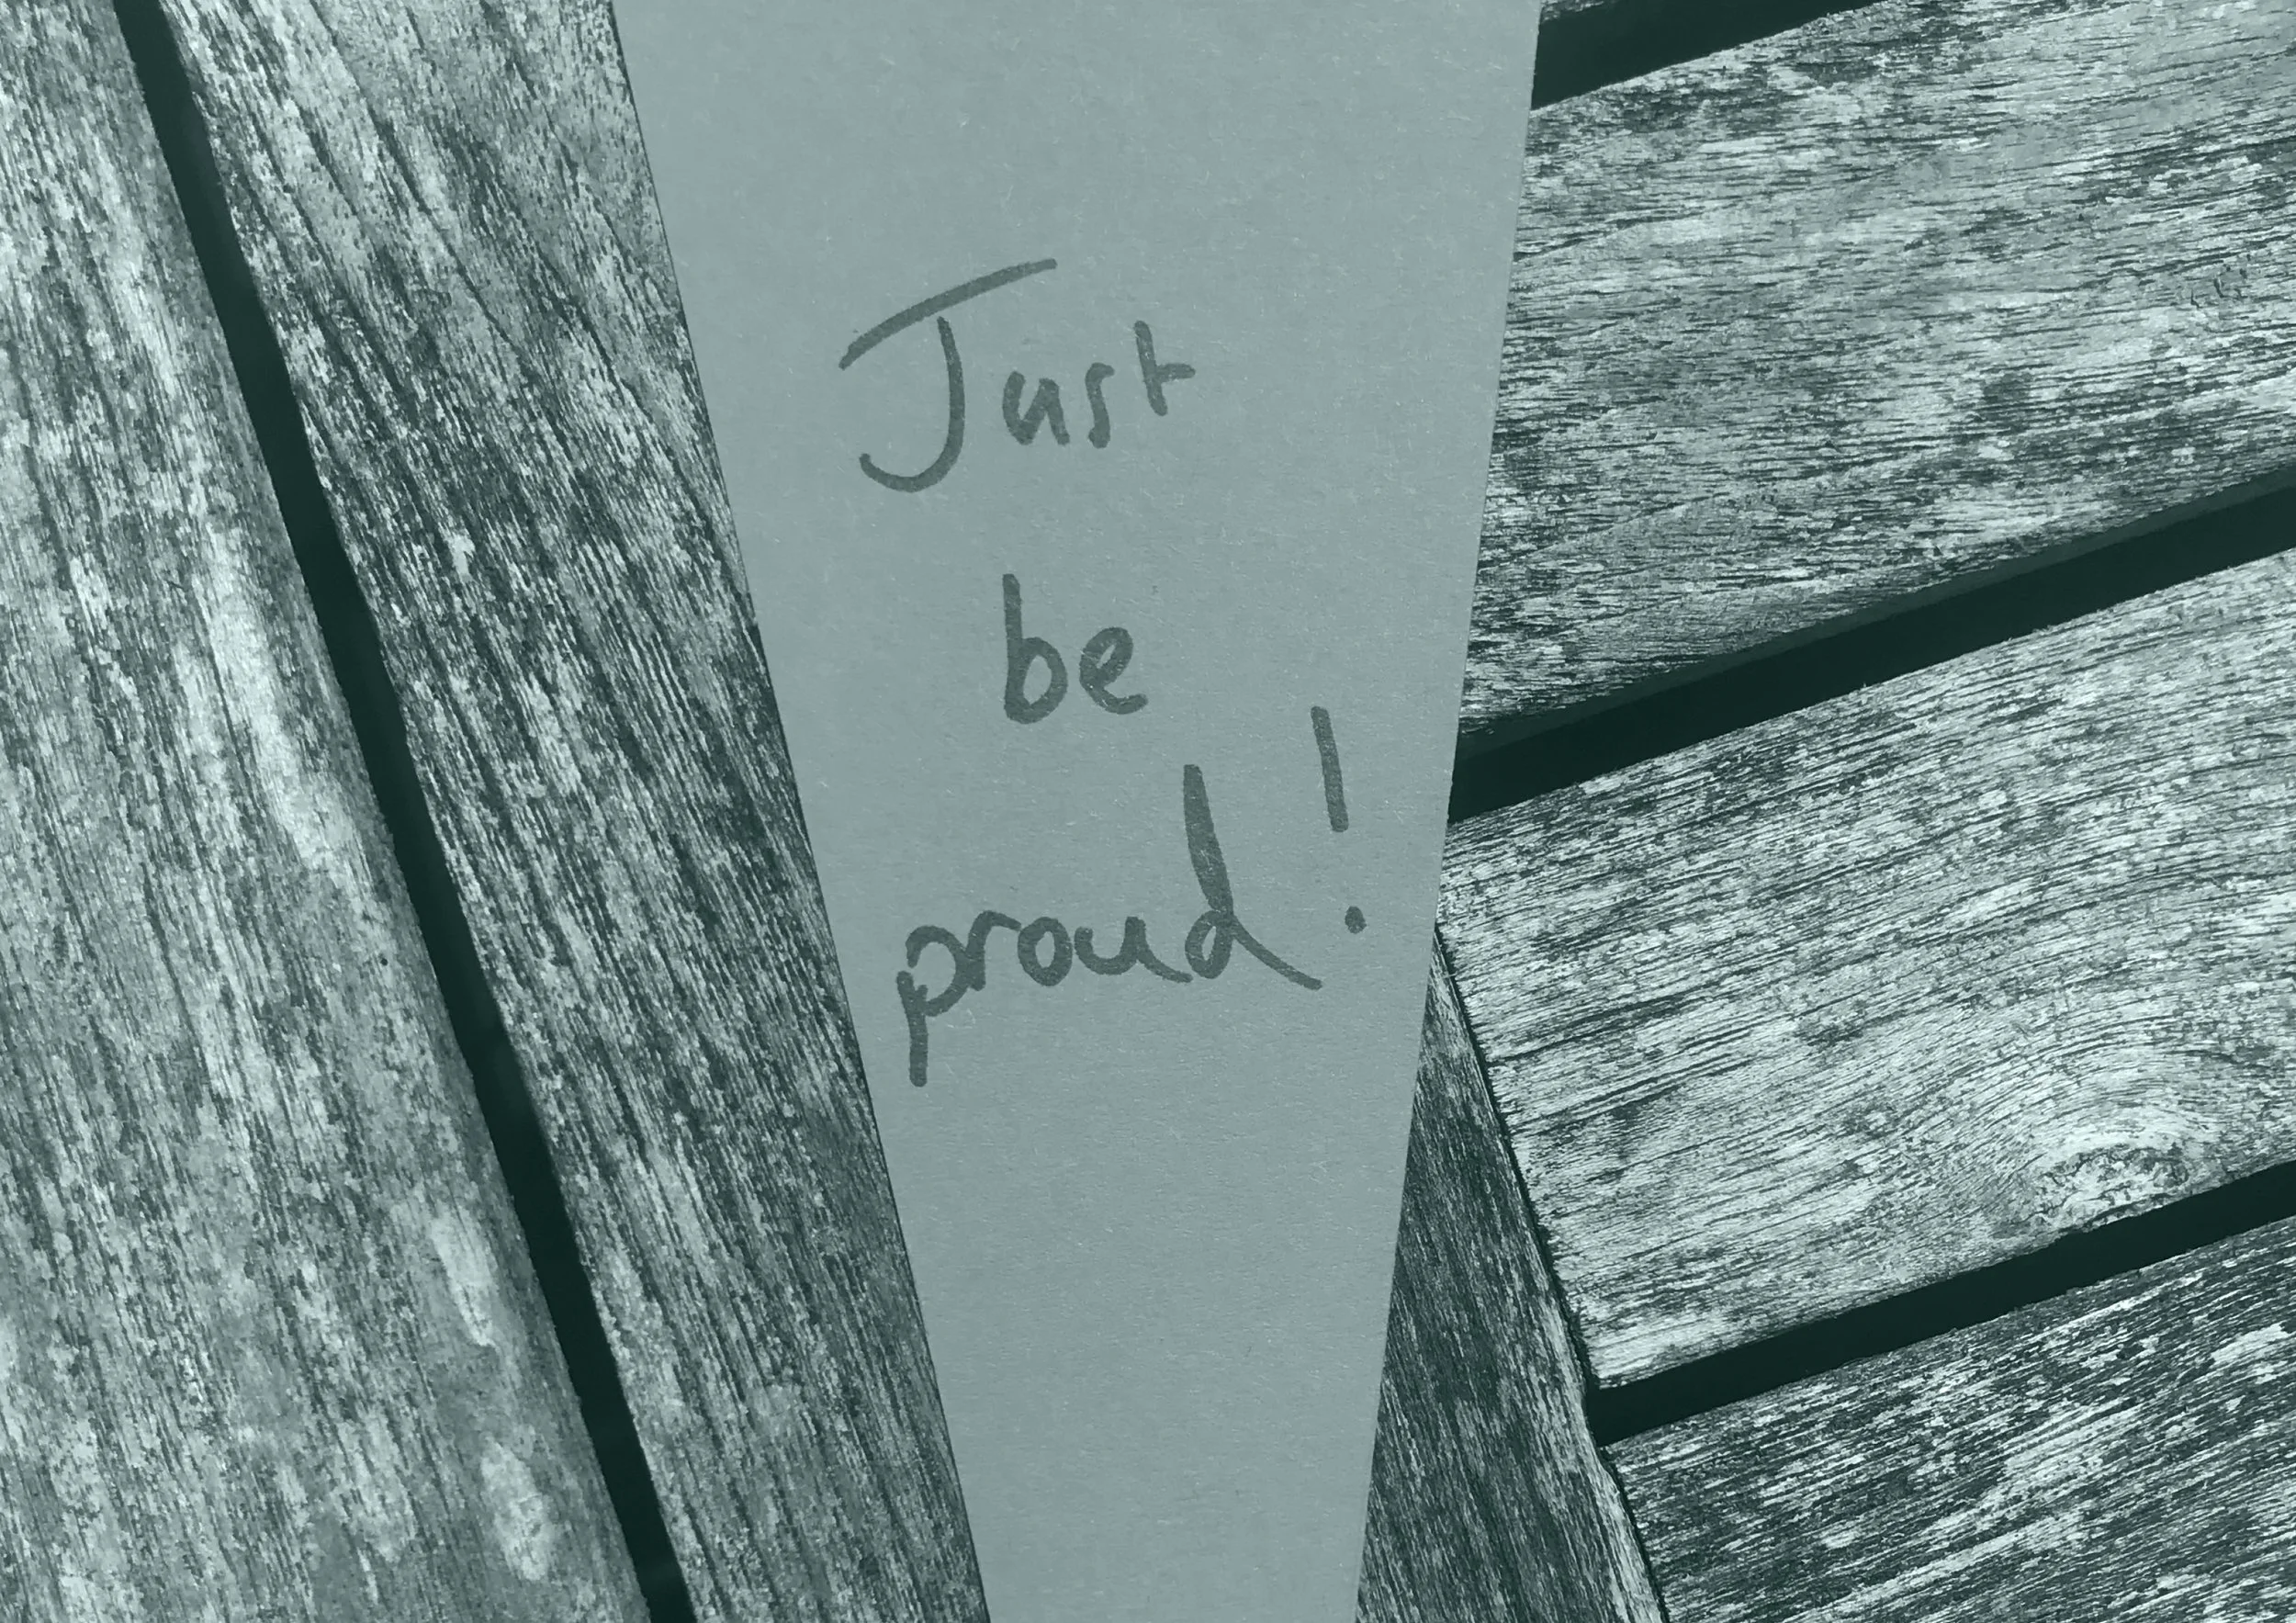 Just
be
proud!